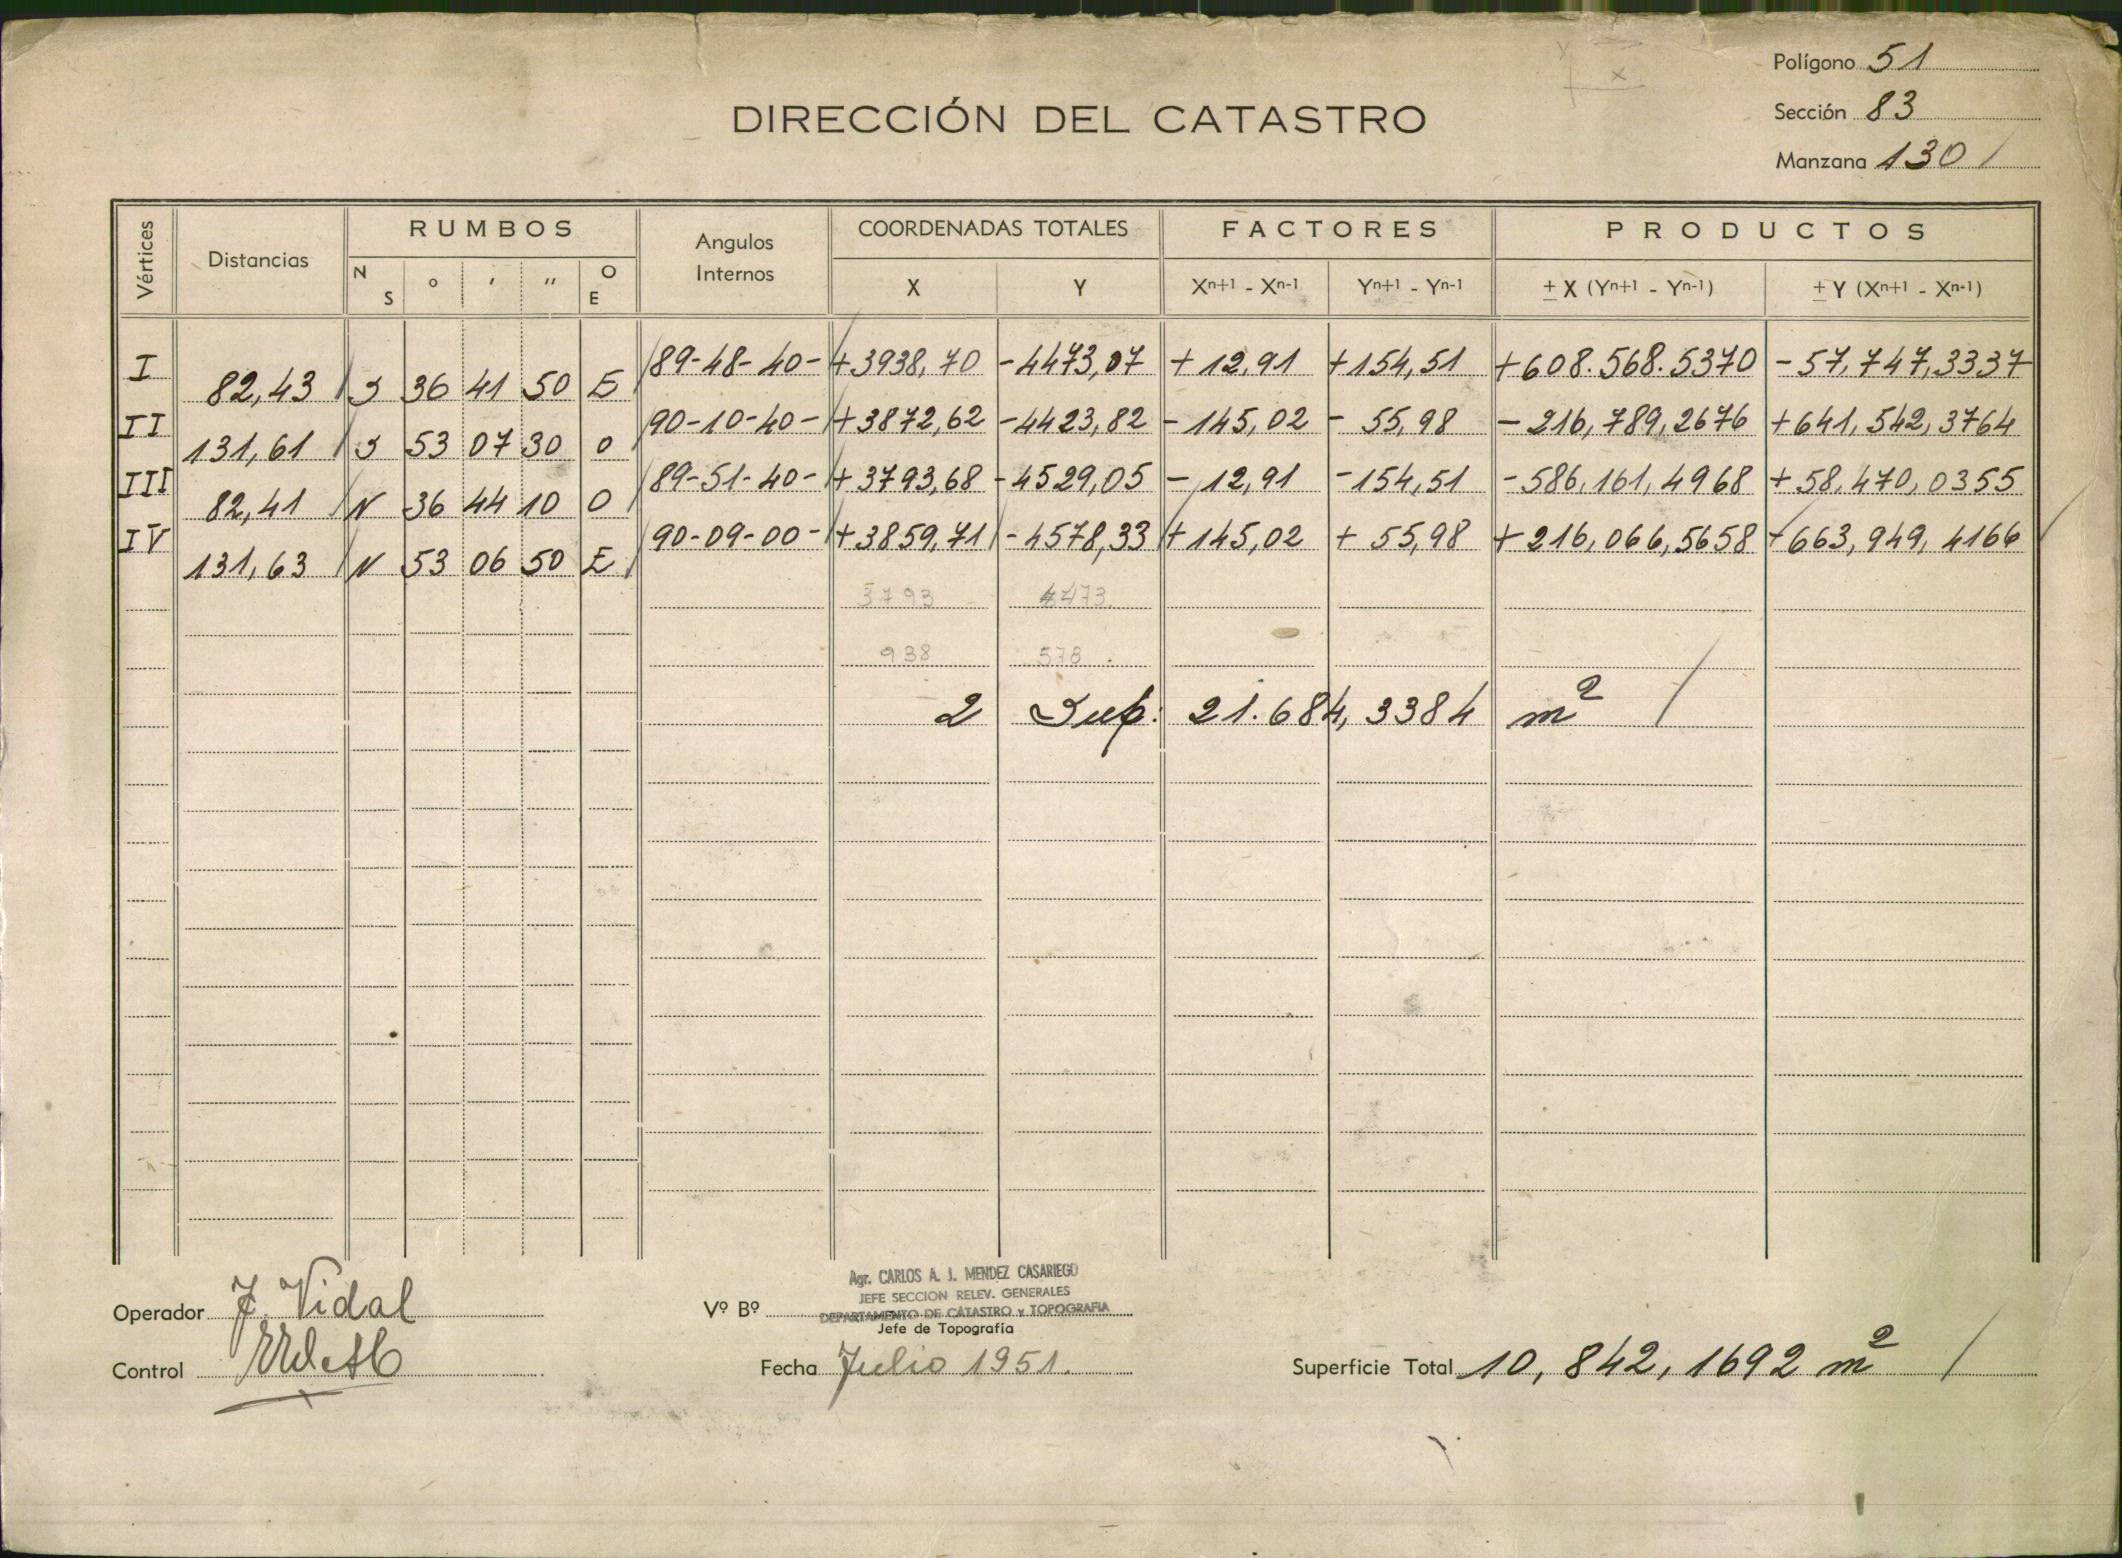 Polígono 51
DIRECCIÓN DEL CATASTRO
Sección 83
Manzana 130
Vértices Distancias RUMBOS Angulos Internos COORDENADAS TOTALES FACTORES PRODUCTOS
N S ° ' " O E X Y Xn+1 - Xn-1 Yn+1 - Yn-1 ± X (Yn+1 - Yn-1) ± Y (Xn+1 - Xn-1)
I 89-48-40- +3938,70 -4473,07 +12,91 +154,51 +608.568.5370 -57,747,3337
82,43 S 36 41 50 E
II 90-10-40- +3872,62 -4423,82 -145,02 -55,98 -216,789,2676 +641,542,3764
131,61 S 53 07 30 O
III 89-51-40- +3793,68 -4529,05 -12,91 -154,51 -586,161,4968 +58,470,0355
82,41 N 36 44 10 O
IV 90-09-00- +3859,71 -4578,33 +145,02 +55,98 +216,066,5658 -663,949,4166
131,63 N 53 06 50 E
3793 4473
938 578
2 Sup: 21.684,3384 m²
Agr. CARLOS A. J. MENDEZ CASARIEGO
JEFE SECCION RELEV. GENERALES
DEPARTAMENTO DE CATASTRO y TOPOGRAFIA
Operador J. Vidal Vº Bº
Jefe de Topografía
Control Fecha Julio 1951. Superficie Total 10,842,1692 m²